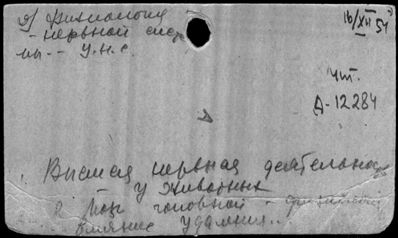 2) Физиология
- нервной сист
мы -- у.н.с.
16/XII 51
Чт.
А-12284
Высшая нервная деятельнос
у животных
2. Мозг головной - физиология
влияние удаления..